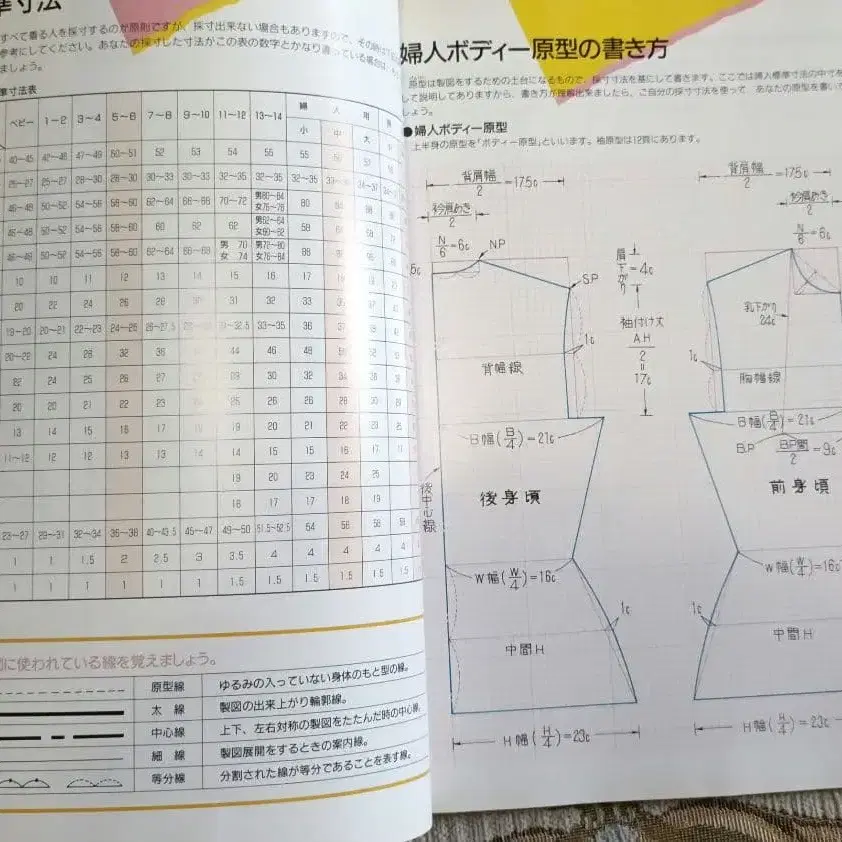 準寸法
すべて着る人を採寸するのが原則ですが、採寸出来ない場合もありますので、その時は
参考にしてください。あなたの採寸した寸法がこの表の数字とかなり違っている場合は、
ましょう。
準寸法表
ベビー 1～2 3～4 5～6 7～8 9～10 11～12 13～14 婦 人 用
小 中 大
40～45 42～48 47～49 50～51 52 53 54 55 55
25～27 25～27 28～30 28～30 30～33 30～33 32～35 32～35 32～35
46～48 50～52 54～56 58～60 62～64 66～68 70～72 男80～84 女76～78 80
46～48 50～52 54～56 58～60 60 62 62 男62～64 女60～62 58
46～48 50～52 54～56 58～60 62～64 66～68 男 70 女 74 男72～80 女76～84 88
10 10 11 12 13 14 15 16 17
20 22 24 26 28 31 32 33
19～20 20～21 22～23 24～25 26～27.5 33～35 36
20～22 24 28 32 36 44 46 48
22 24 25 26 27 29 30 32 34
20 20 21 22 23 26 28
13 14 15 16 17 19 20 21 22
11～12 12 12 13 13 14 14 15 15 16 17
19 20 23 24 25
16 17 17 18 19
23～27 29～31 32～34 36～38 40～43.5 45～47 49～50 51.5～52.5 54 56 58
1 1 1.5 2 2.5 3 3.5 4 4 4 4
1 1 1 1 1 1 1.5 1.5 1.5 1.5 1.5
に使われている線を覚えましょう。
原型線 ゆるみの入っていない身体のもと型の線。
太 線 製図の出来上がり輪郭線。
中心線 上下、左右対称の製図をたたんだ時の中心線。
細 線 製図展開をするときの案内線。
等分線 分割された線が等分であることを表す線。
婦人ボディー原型の書き方
原型は製図をするための土台になるもので、採寸寸法を基にして書きます。ここでは婦人標準寸法の中寸を
して説明してありますから、書き方が理解出来ましたら、ご自分の採寸寸法を使って あなたの原型を書いて
しょう。
●婦人ボディー原型
上半身の原型を「ボディー原型」といいます。袖原型は12頁にあります。
背肩幅/2 =17.5c
衿肩あき/2
N/6 =6c
NP
S.P
肩下がり =4c
袖付け丈
A.H/2
=
17c
1c
背幅線
B幅(B/4)=21c
後中心線
後身頃
W幅(W/4)=16c
1c
中間H
H幅(H/4)=23c
背肩幅/2 =17.5c
衿肩あき/2
N/6 =6c
乳下がり
24c
1c
胸幅線
B幅(B/4)=21c
B.P BP間/2 =9c
前身頃
W幅(W/4)=16c
1c
中間H
H幅(H/4)=23c